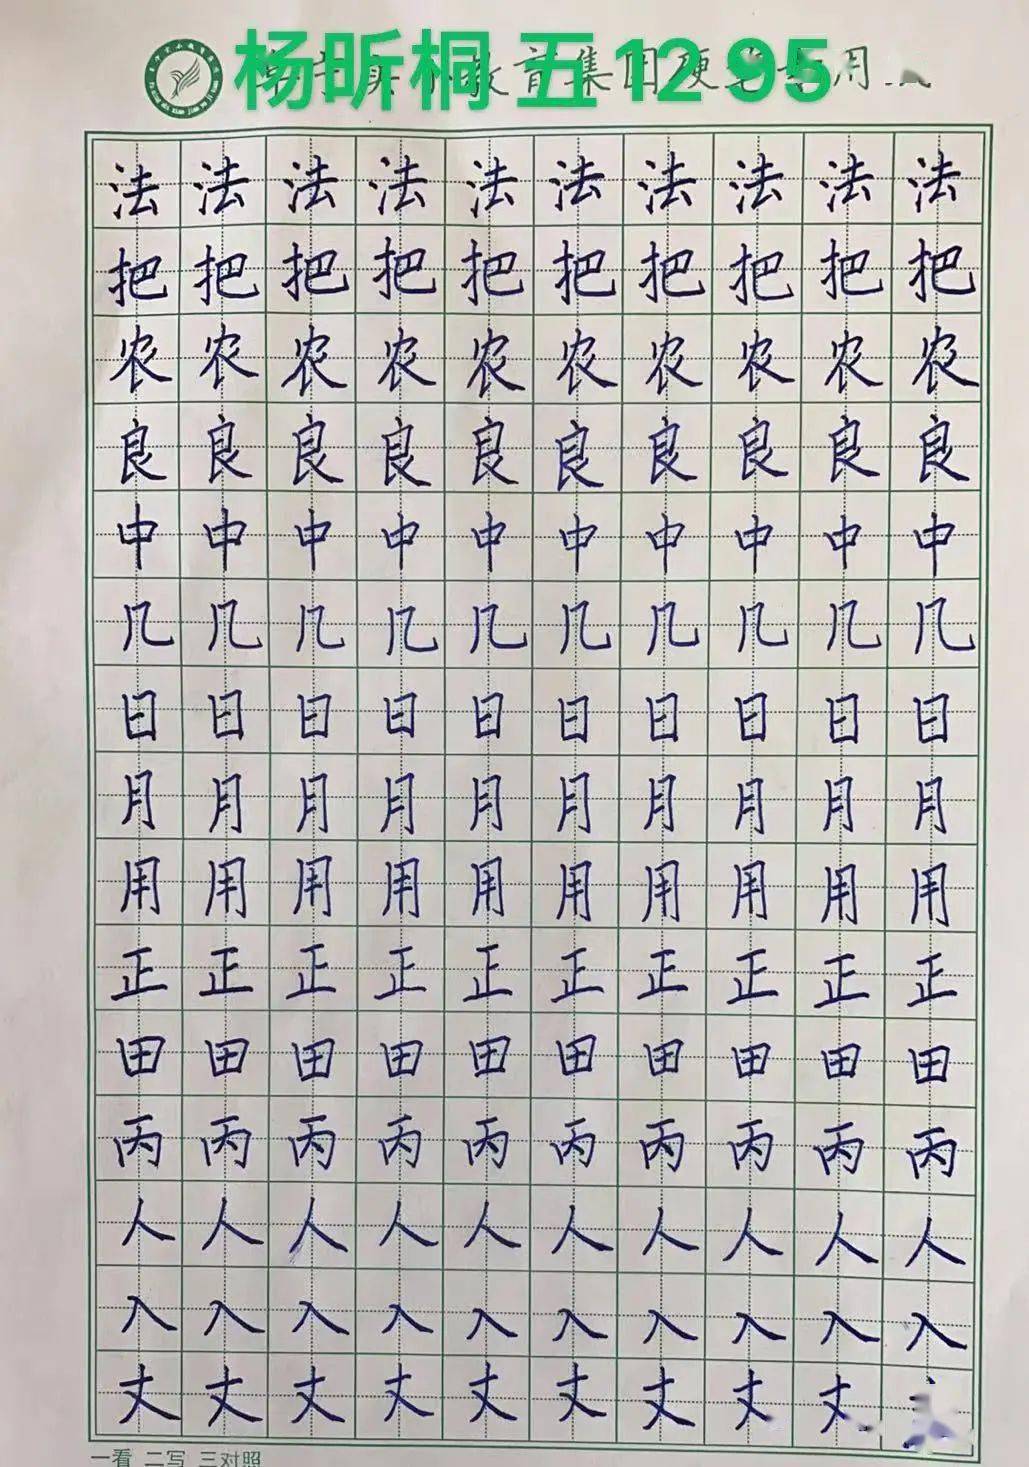 杨昕桐 五 12 95
教育集团硬笔专用
法法法法法法法法法法
把把把把把把把把把把
农农农农农农农农农农
良良良良良良良良良良
中中中中中中中中中中
几几几几几几几几几几
日日日日日日日日日日
月月月月月月月月月月
用用用用用用用用用用
正正正正正正正正正正
田田田田田田田田田田
丙丙丙丙丙丙丙丙丙丙
人人人人人人人人人人
入入入入入入入入入入
丈丈丈丈丈丈丈丈丈
一看 二写 三对照